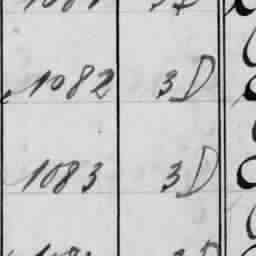 1082 3D
1083 3D